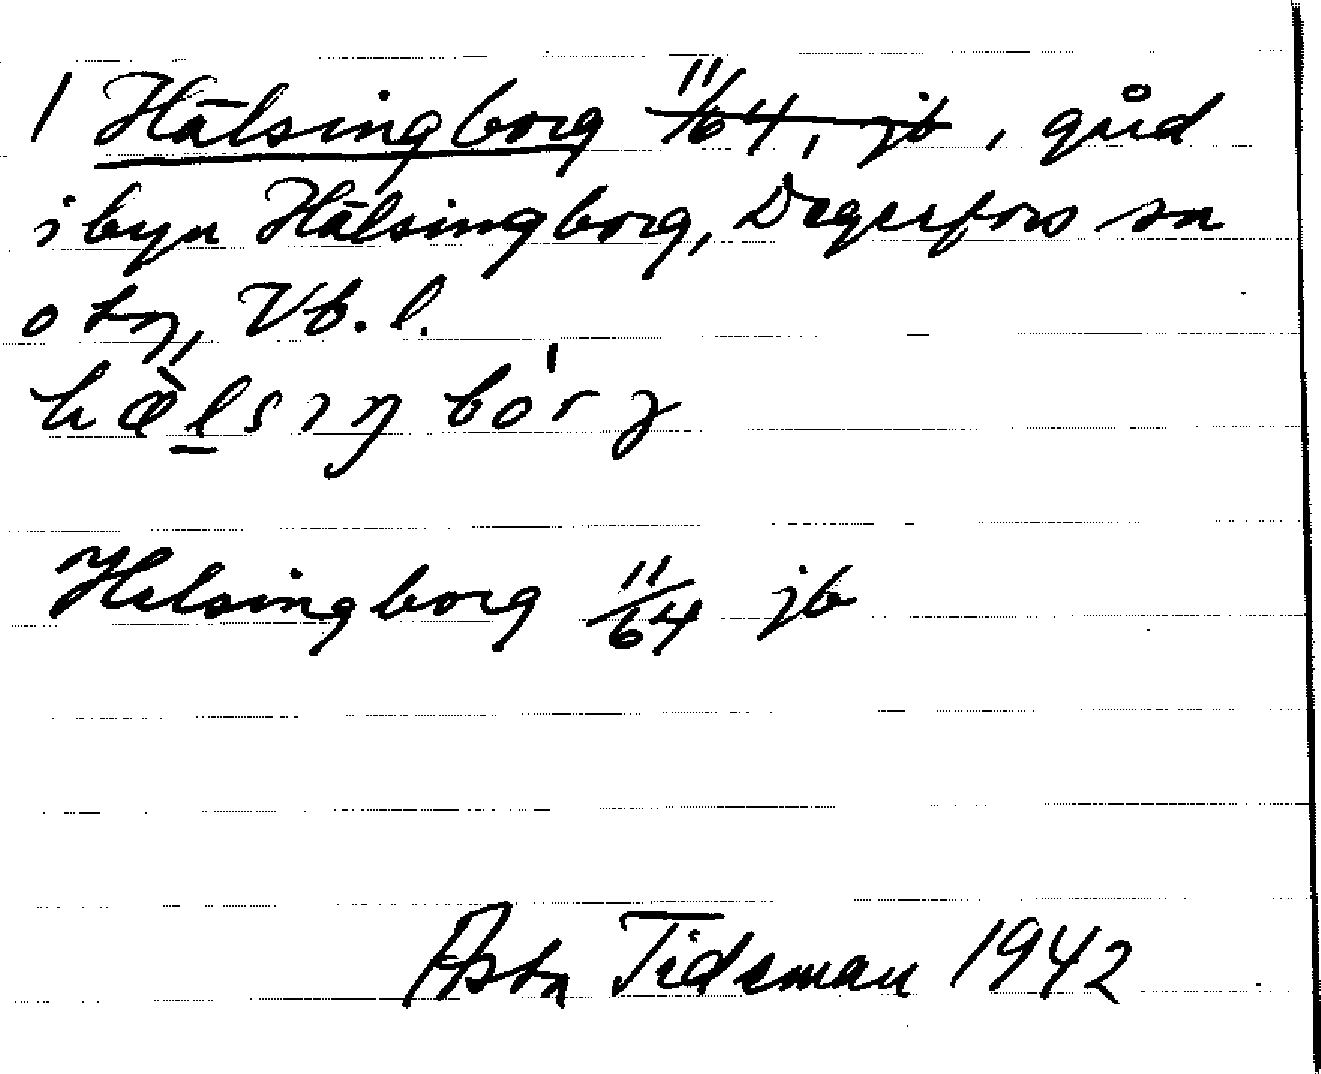 1 Hälsingborg 11/64, jb, gård
i byn Hälsingborg, Degerfors sn
o tg, Vb. l.
hæ̀lsıŋbór
Helsingborg 11/64 jb
Asta Tidsman 1942